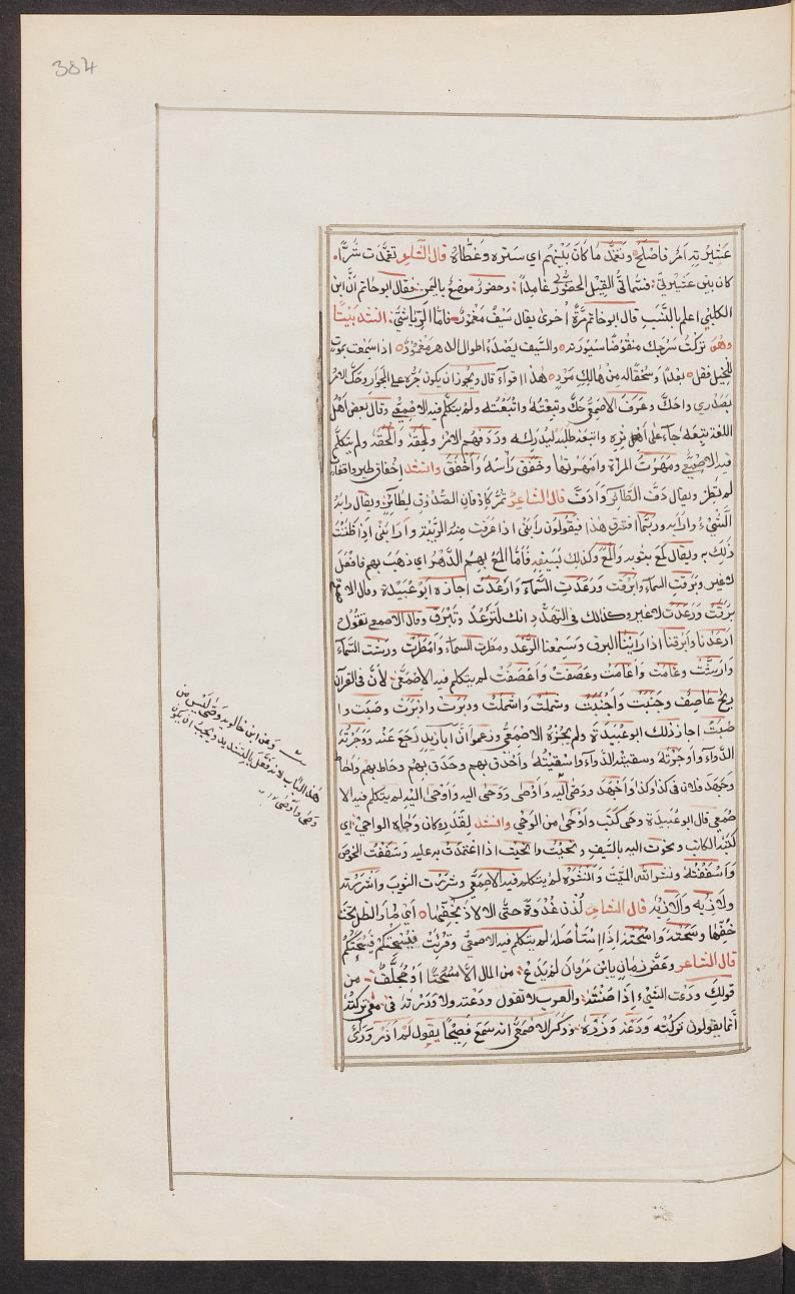 384
عشيرته امر فاصلحه وتغمد ما كان بينهم اي ستره وغطاه قال الشاعر تغمدت شرا
كان بين عشيرتي فسماني القيل الحضوري غامدا وحضور موضع باليمن فقال ابو حاتم ان ابن
الكلبي اعلم بالنسب قال ابو حاتم مرة اخرى يقال سيف مغمود فاما الرياشي انشد بيتا
وهو تركت سرجك منقوضا سيوره والسيف يصدأ طوال الدهر مغمود اذا سمعت بموت
للبخيل فقل بعدا وسحقا له من هالك مود هذا اقواء قال ويجوز ان يكون جره على الجوار وحك الامر
بصدري واحك وعرف الاصمعي حك وتبعته واتبعته ولم يتكلم فيه الاصمعي وقال بعض اهل
اللغة تبعه جاء على اهل ثره واتبعه طلبه ليدركه وردفهم الامر ولحقه والحقه ولم يتكلم
فيه الاصمعي ومهرت المراة وامهرتها وخفق راسه واخفق وانشد اخفاق طير واقفات
لم تطر ويقال دف الطائر وادف قال الشاعر تمر كاذفان الصدوق لطائر ويقال رابه
الشيء وارابه وربما افترق هذا فيقولون رابني اذا عرفت منه الريبة وارابني اذا ظننت
ذلك به ويقال لمع بثوبه والمع وكذلك بسيفه فاما المع بهم الدهر اي ذهب بهم فافعل
لا غير وبرقت السماء وابرقت ورعدت السماء وارعدت اجازه ابو عبيدة وقال الاصمعي
برقت ورعدت لا غير وكذلك في التهدد انك لترعد وتبرق وقال الاصمعي نقول
ارعدنا وابرقنا اذا راينا البرق وسمعنا الرعد ومطرت السماء وامطرت ورشت السماء
وارشت وغامت واغامت وعصفت واعصفت لم يتكلم فيه الاصمعي لان في القرآن
ريح عاصف وجنبت واجنبت وشملت واشملت ودبرت وادبرت وصبت وا
صبت اجاز ذلك ابو عبيدة ولم يجزه الاصمعي وزعموا ان ابا زيد رجع عنه ووجرته
الدواء واوجرته وسقيته الدواء واسقيته واحدق بهم وحدق بهم وحاط بهم واحاط
وجهد فلان في كذا وكذا واجهد ووضى اليه واوضى ووحى اليه واوحى اليه لم يتكلم فيه الا
صمعي قال ابو عبيدة وحى كتب واوحى من الوحي وانشد لقدر كان وحاه الواحي اي
كتبه الكاتب ونحوت اليه بالسيف وانحيت اذا اعتمدت به عليه وسففت الخوص
واسففته ونشر الله الميت وانشره لم يتكلم فيه الاصمعي وشررت الثوب واشررته
ولاذ به والاذ به قال الشاعر لدن غدوة حتى الاذ بخفها اي صار الظل تحت
خفها وسحته واسحته اذا استاصله لم يتكلم فيه الاصمعي وقرئت فيسحتكم فيسحتكم
قال الشاعر وعض زمان يا بن مروان لم يدع من المال الا مسحتا او مجلف من
قولك ودعت الشيء اذا صنته والعرب لا تقول ودعته ولا وذرته في معنى تركته
انما يقولون تركته ودعه وذره وذكر الاصمعي انه سمع فصيحا يقول لم اذر وراءي
وعن ابن خالويه وضى ليس من
هذا الباب لانه فعل بالتشديد ويجب ان يكون
وضى واوضى